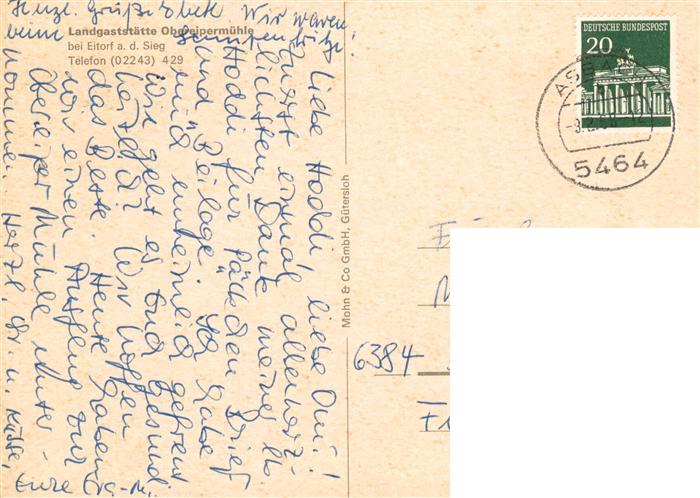 Herzl. Grüße
Wir waren
beim
Landgaststätte Obereipermühle
bei Eitorf a. d. Sieg
Telefon (02243) 429
Liebe Hoddi, liebe Omi!
Zuerst einmal allerherz-
lichsten Dank meiner lb.
Hoddi für Päckchen, Brief
und Beilage. Ich habe
mich unheimlich gefreut
Wie geht es Euch gesund-
heitlich? Wir hoffen
das Beste. Heute haben
wir einen Ausflug zur
Obereiper Mühle unter-
nommen. Herzl. Gr. u. Küsse,
Eure
Mohn & Co GmbH, Gütersloh
DEUTSCHE BUNDESPOST
20
5464
6384